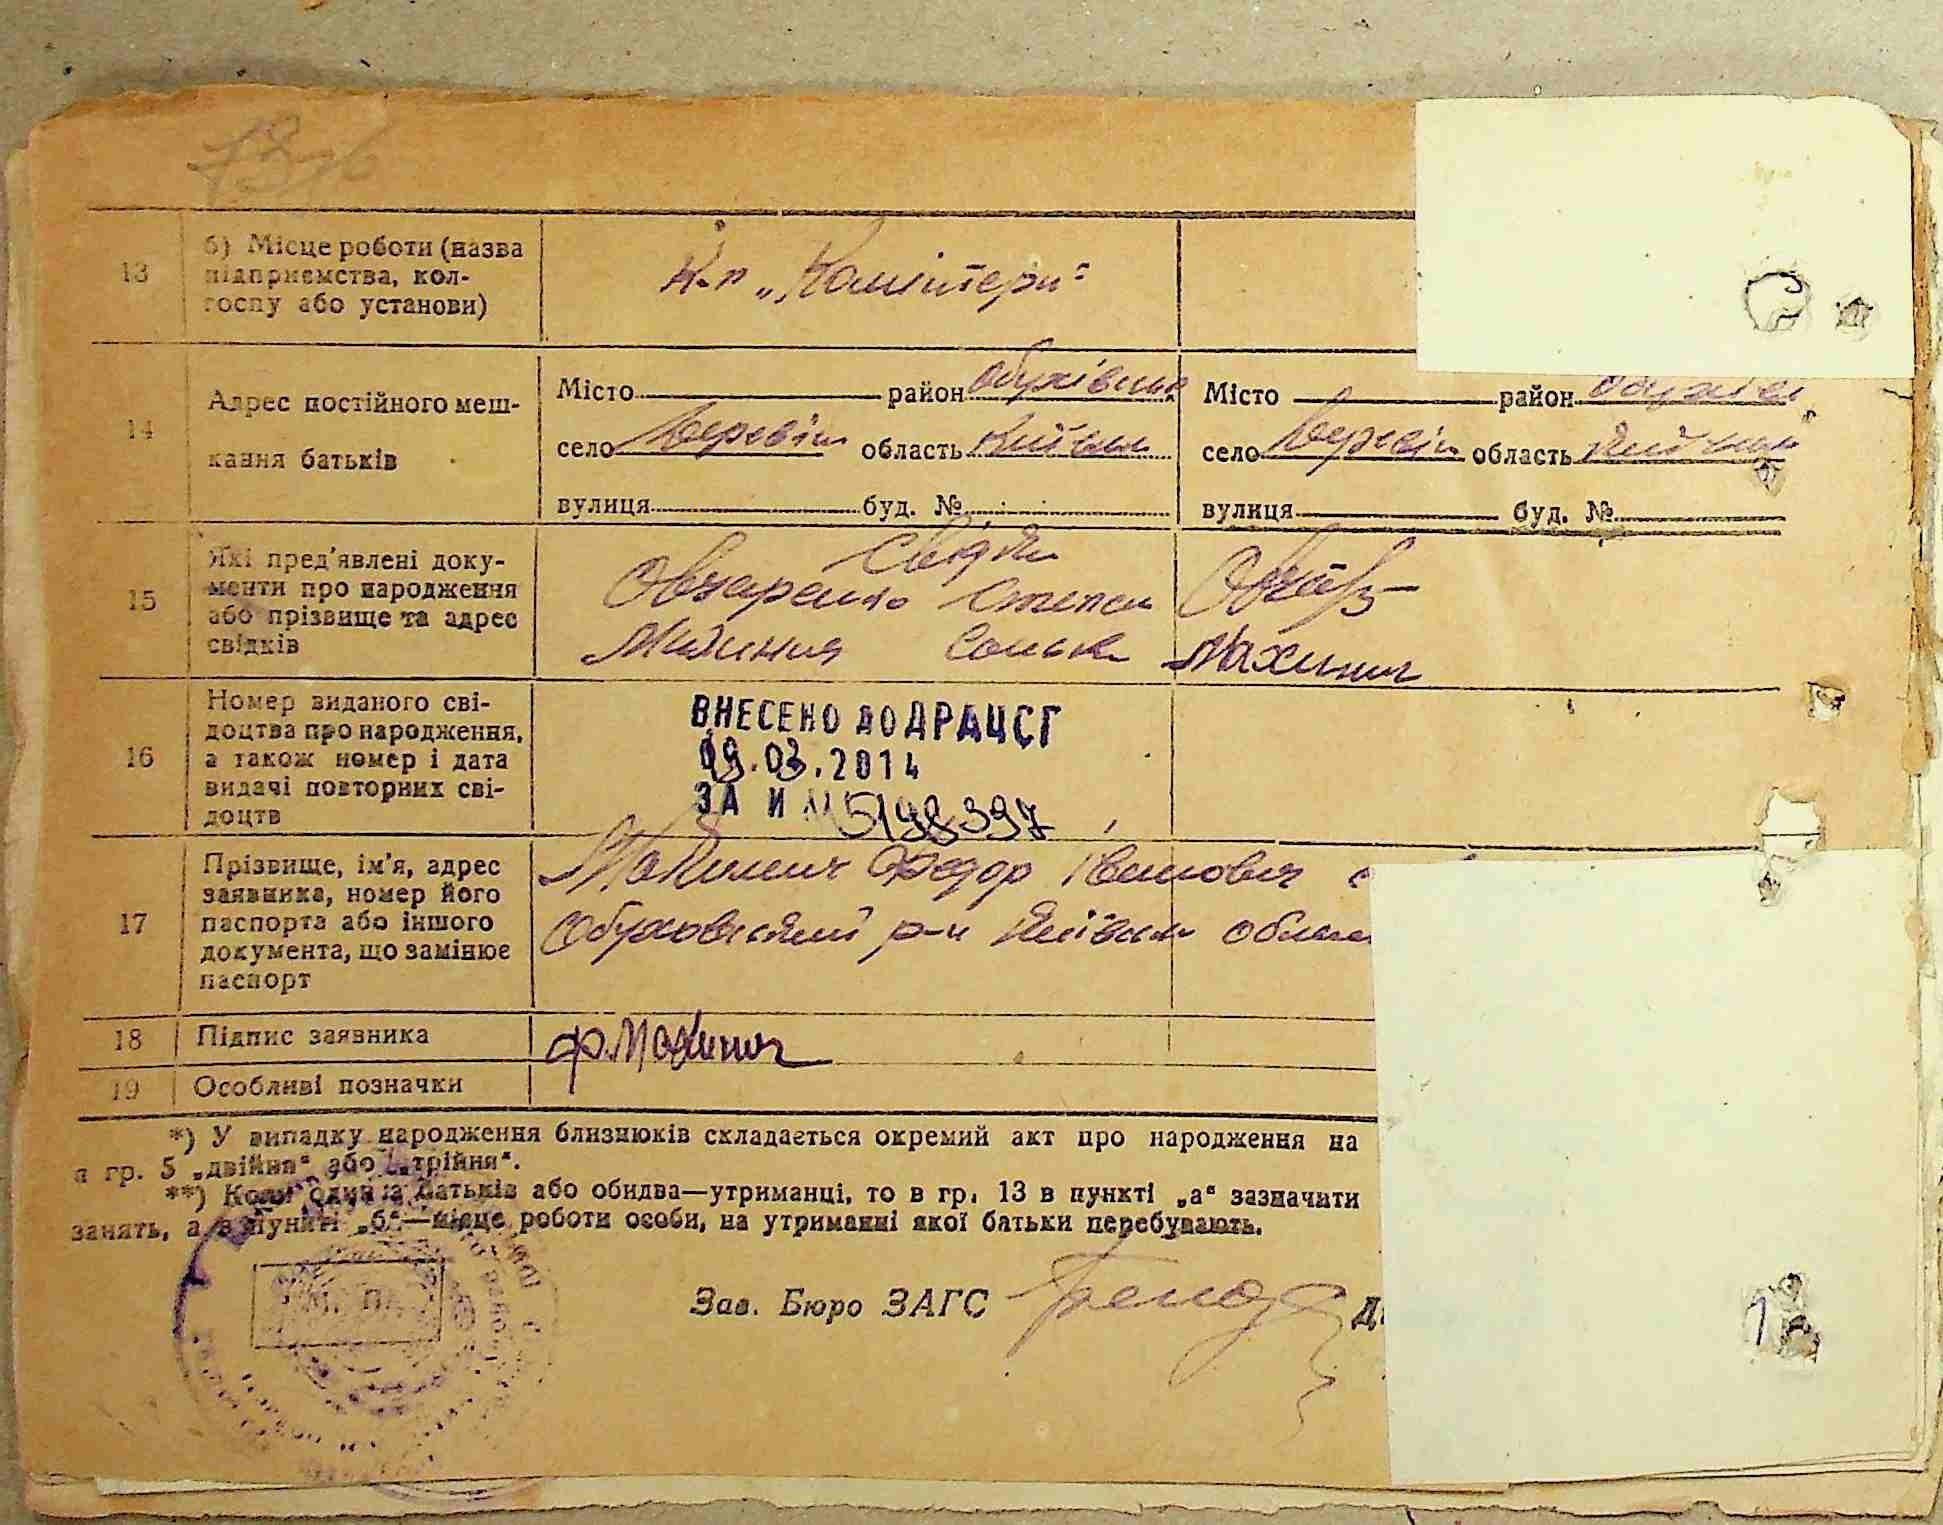 13
б) Місце роботи (назва
підприємства, кол-
госпу або установи)
К-п „Комінтерн"
14
Адрес постійного меш-
кання батьків
Місто район Обухівськ
село область Київськ
вулиця буд. №
Місто район
село область Київськ
вулиця буд. №
15
Які пред'явлені доку-
менти про народження
або прізвище та адрес
свідків
Свідки
Овчаренко Степан
Махиния
Махинич
16
Номер виданого сві-
доцтва про народження,
а також номер і дата
видачі повторних сві-
доцтв
ВНЕСЕНО ДО ДРАЦСГ
09.03.2014
ЗА И 5198397
17
Прізвище, ім'я, адрес
заявника, номер його
паспорта або іншого
документа, що замінює
паспорт
Махинич Федор Іванович
Обуховский р-н Київськ
18
Підпис заявника
Ф. Махинич
19
Особливі позначки
*) У випадку народження близнюків складається окремий акт про народження на
в гр. 5 „двійня" або „трійня".
**) Коли один з батьків або обидва—утриманці, то в гр. 13 в пункті „а" зазначити
занять, а в пункті „б"—місце роботи особи, на утриманні якої батьки перебувають.
Зав. Бюро ЗАГС